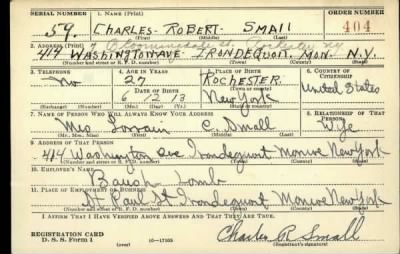 SERIAL NUMBER 1. NAME (Print) ORDER NUMBER
59. CHARLES - ROBERT - SMALL 404
(First) (Middle) (Last)
2. ADDRESS (Print)
414 WASHINGTON AVE. IRONDEQUOIT. MON. N.Y.
(Number and street or R. F. D. number) (Town) (County) (State)
3. TELEPHONE 4. AGE IN YEARS 5. PLACE OF BIRTH 6. COUNTRY OF CITIZENSHIP
No 27 ROCHESTER United States
DATE OF BIRTH (Town or county)
6 12 13 New York
(Exchange) (Number) (Mo.) (Day) (Yr.) (State or country)
7. NAME OF PERSON WHO WILL ALWAYS KNOW YOUR ADDRESS 8. RELATIONSHIP OF THAT PERSON
Mrs Lorrain C. Small Wife
(Mr., Mrs., Miss) (First) (Middle) (Last)
9. ADDRESS OF THAT PERSON
414 Washington Ave Irondequoit Monroe New York
(Number and street or R. F. D. number) (Town) (County) (State)
10. EMPLOYER'S NAME
Baush Lomb
11. PLACE OF EMPLOYMENT OR BUSINESS
St Paul St Irondequoit Monroe New York
(Number and street or R. F. D. number) (Town) (County) (State)
I AFFIRM THAT I HAVE VERIFIED ABOVE ANSWERS AND THAT THEY ARE TRUE.
REGISTRATION CARD
D. S. S. Form 1 (over) 16—17105 Charles R Small
(Registrant's signature)